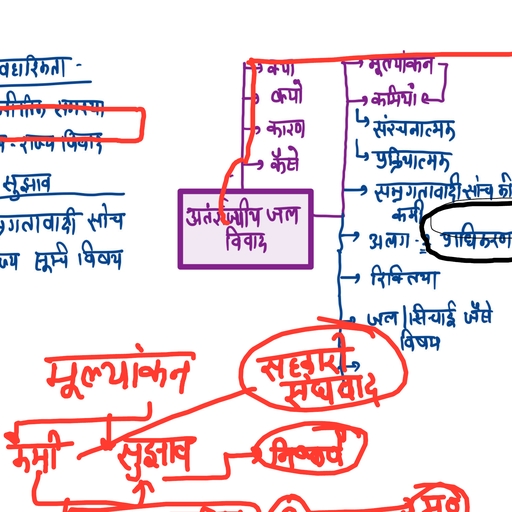 वहारिकता -
समस्या
राज्य विवाद
सुझाव
ग्रतावादी सोच
ज्य सूची विषय
क्या
क्यों
कारण
कैसे
अंतर्राज्यीय जल
विवाद
मूल्यांकन
कमियां
संरचनात्मक
प्रक्रियात्मक
समग्रतावादी सोच की
कमी
अलग - प्राधिकरण
रिक्तिया
जल / सिंचाई जैसे
विषय
सहकारी
संघवाद
मूल्यांकन
कमी
सुझाव
निष्कर्ष